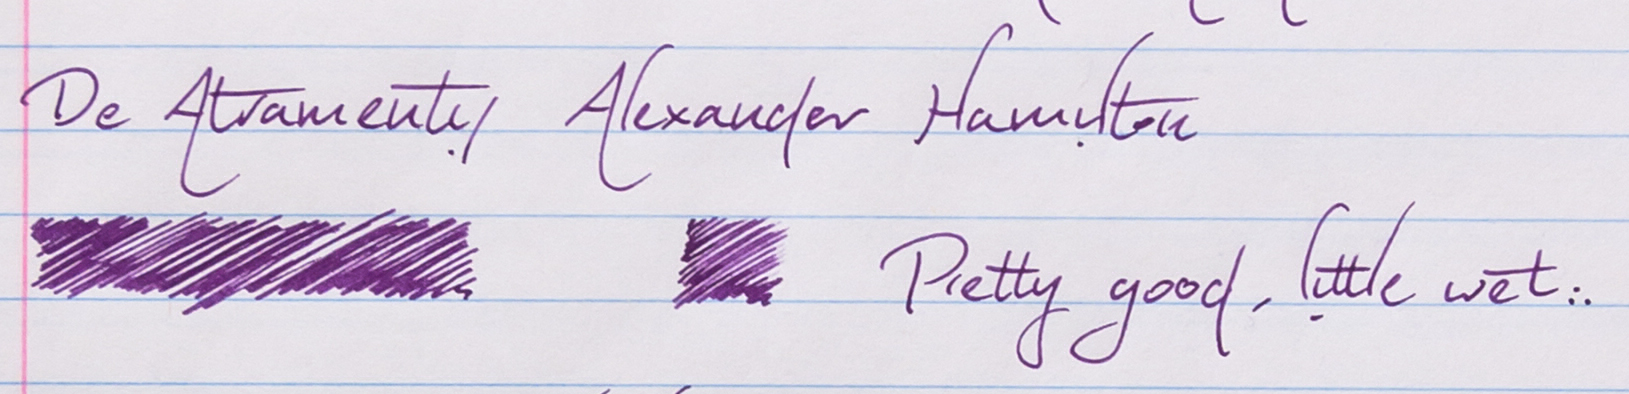 De Atramentis Alexander Hamilton
Pretty good, little wet..